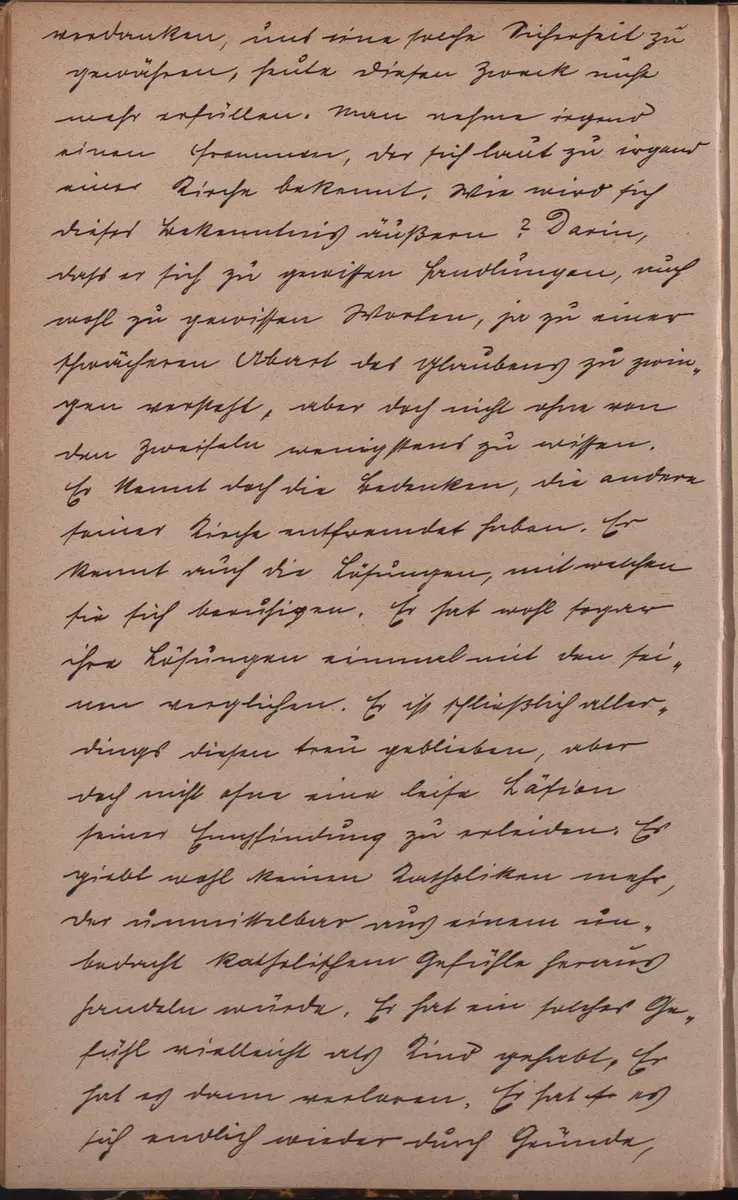 verdanken, uns eine solche Sicherheit zu
gewähren, heute diesen Zweck nicht
mehr erfüllen. Man nehme irgend
einen Frommen, der sich laut zu irgend
einer Kirche bekennt. Wie wird sich
dieses Bekenntnis äußern? Darin,
dass er sich zu gewissen Handlungen, auch
wohl zu gewissen Worten, ja zu einer
schwächeren Abart des Glaubens zu zwin-
gen versteht, aber doch nicht ohne von
den Zweifeln wenigstens zu wissen.
Er kennt doch die Bedenken, die andere
seiner Kirche entfremdet haben. Er
kennt auch die Lösungen, mit welchen
sie sich beruhigen. Er hat wohl sogar
ihre Lösungen einmal mit den sei-
nen verglichen. Er ist schließlich aller-
dings diesen treu geblieben, aber
doch nicht ohne eine leise Läsion
seiner Empfindung zu erleiden. Es
giebt wohl keinen Katholiken mehr,
der unmittelbar aus einem un-
bedacht katholischem Gefühle heraus
handeln würde. Er hat ein solches Ge-
fühl vielleicht als Kind gehabt. Er
hat es dann verloren. Er hat es
sich endlich wieder durch Gründe,